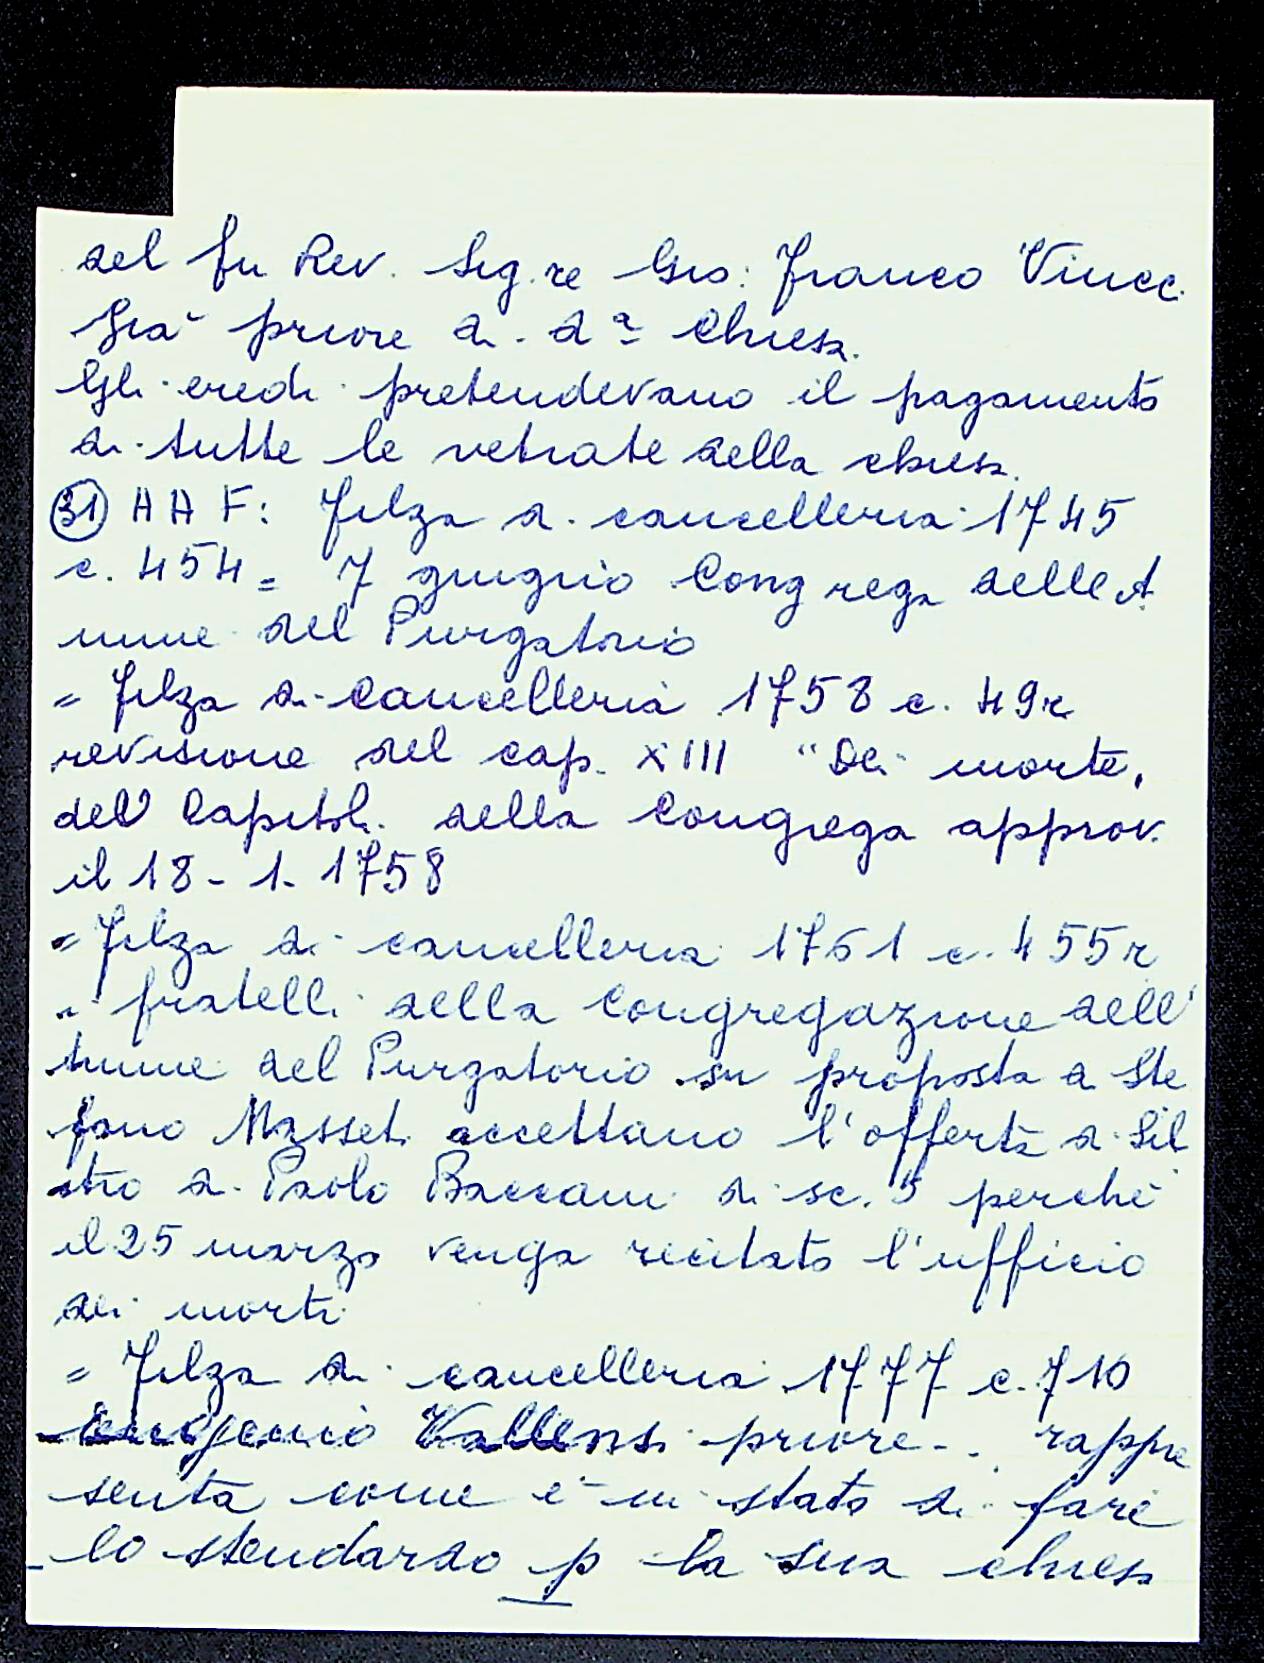 del fu Rev. Sig.re Gio: Franco Vincc.
Già priore di d.ª Chiesa.
Gli eredi pretendevano il pagamento
di tutte le vetrate della chiesa.
(31) A A F: Filza di cancelleria 1745
c. 454 = 7 giugno Congrega delle A
nime del Purgatorio
= Filza di Cancelleria 1758 c. 49r
revisione del cap. XIII "Dei morti,
del Capitoli della Congrega approv.
il 18-1-1758
= Filza di cancelleria 1761 c. 455r
i fratelli della Congregazione dell'
Anime del Purgatorio su proposta di Ste
fano Masseti accettano l'offerta di Sil
stro di Paolo Baccani di sc. 5 perchè
il 25 marzo venga recitato l'ufficio
dei morti
= Filza di cancelleria 1777 c. 710
Eugenio Vallensi priore .. rappre
senta come è in stato di fare
lo stendardo p la sua chiesa